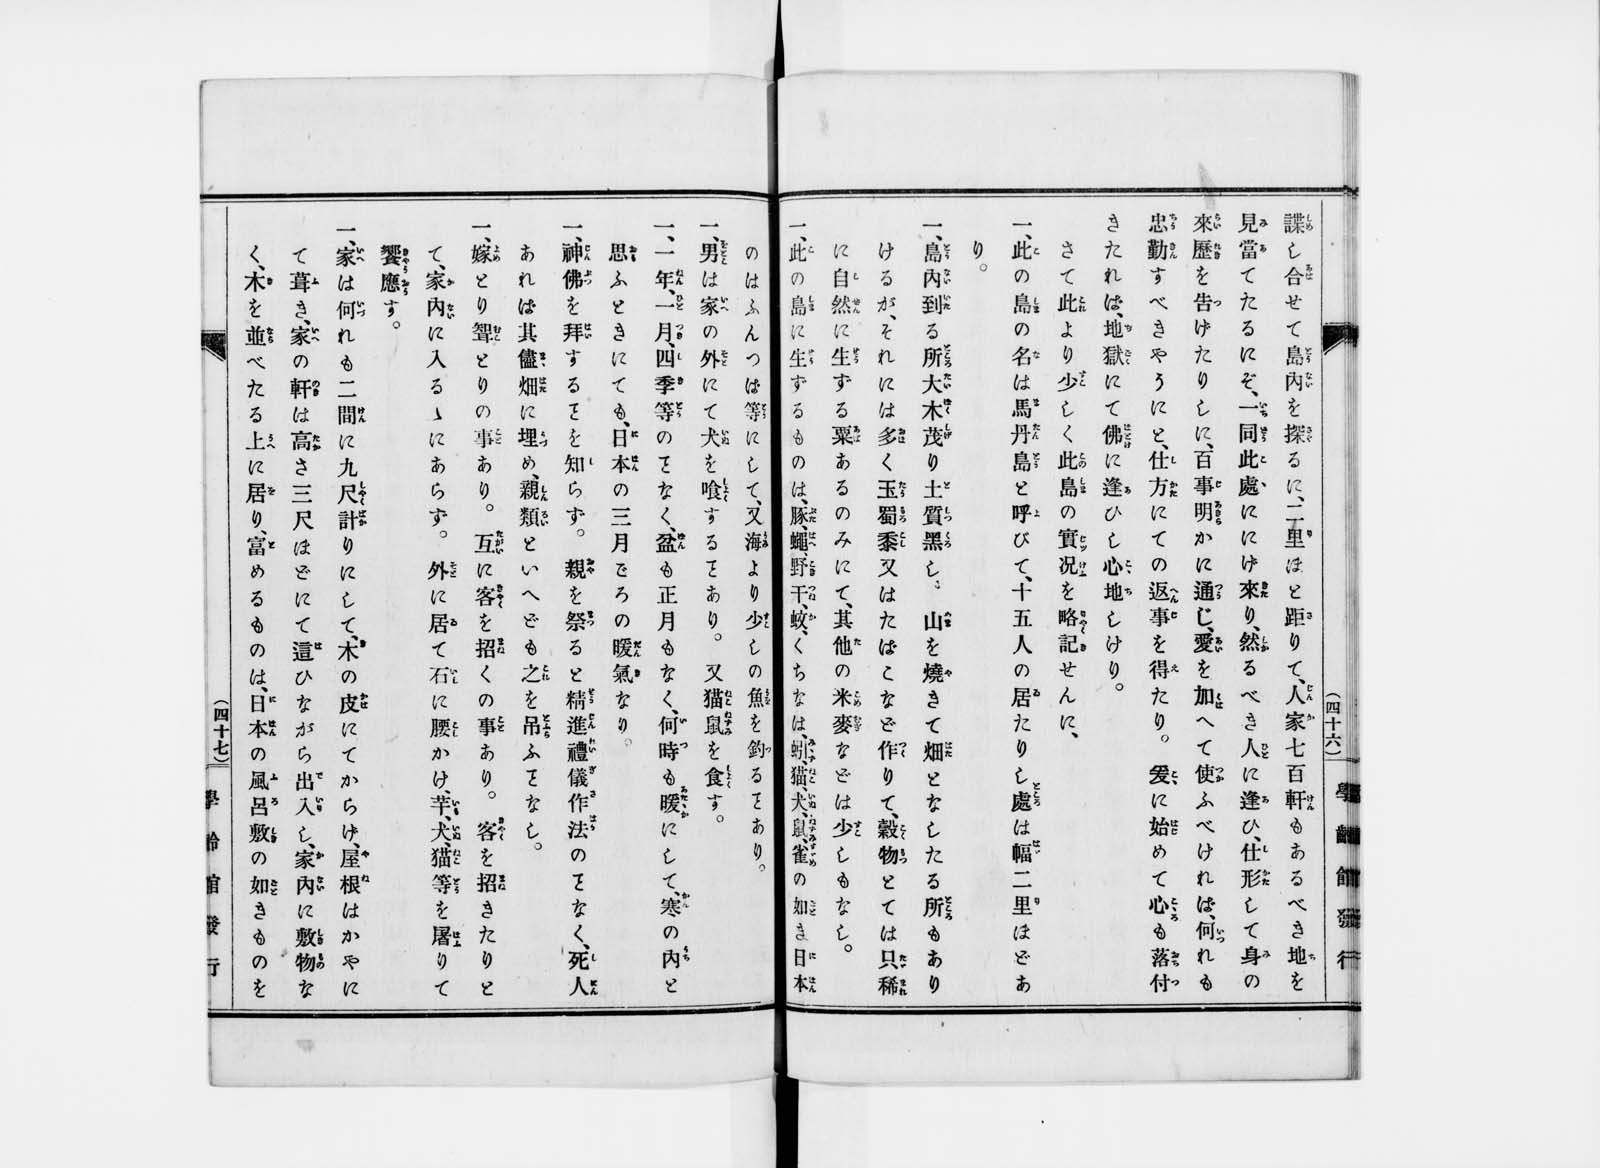 諜し合せて島內を探るに、二里ほと距りて、人家七百軒もあるべき地を
見當てたるにぞ、一同此處ににげ來り、然るべき人に逢ひ、仕形して身の
來歷を告げたりしに、百事明かに通じ、愛を加へて使ふべければ、何れも
忠勤すべきやうにと、仕方にての返事を得たり。爰に始めて心も落付
きたれば、地獄にて佛に逢ひし心地しけり。
さて此より少しく此島の實况を略記せんに、
一、此の島の名は馬丹島と呼びて、十五人の居たりし處は幅二里ほどあ
り。
一、島內到る所大木茂り土質黑し。山を燒きて畑となしたる所もあり
けるが、それには多く玉蜀黍又はたばこなど作りて、穀物とては只、稀
に自然に生ずる粟あるのみにて、其他の米麥などは少しもなし。
一、此の島に生ずるものは、豚、蠅、野干、蚊、くちなは、蚓、猫、犬、鼠、雀の如き日本
のはふんつば等にして、又海より少しの魚を釣るヿあり。
一、男は家の外にて犬を喰するヿあり。又猫鼠を食す。
一、一年、一月、四季等のヿなく、盆も正月もなく、何時も暖にして、寒の內と
思ふときにても、日本の三月ごろの暖氣なり。
一、神佛を拜するヿを知らず。親を祭ると精進禮儀作法のヿなく、死人
あれば其儘畑に埋め、親類といへども之を吊ふヿなし。
一、嫁とり聟とりの事あり。互に客を招くの事あり。客を招きたりと
て、家內に入るゝにあらず。外に居て石に腰かけ、芋、犬、猫等を屠りて
饗應す。
一、家は何れも二間に九尺計りにして、木の皮にてからげ、屋根はかやに
て葺き、家の軒は高さ三尺ほどにて這ひながら出入し、家內に敷物な
く、木を並べたる上に居り、富めるものは、日本の風呂敷の如きものを
(四十六)
學齡館發行
(四十七)
學齡館發行